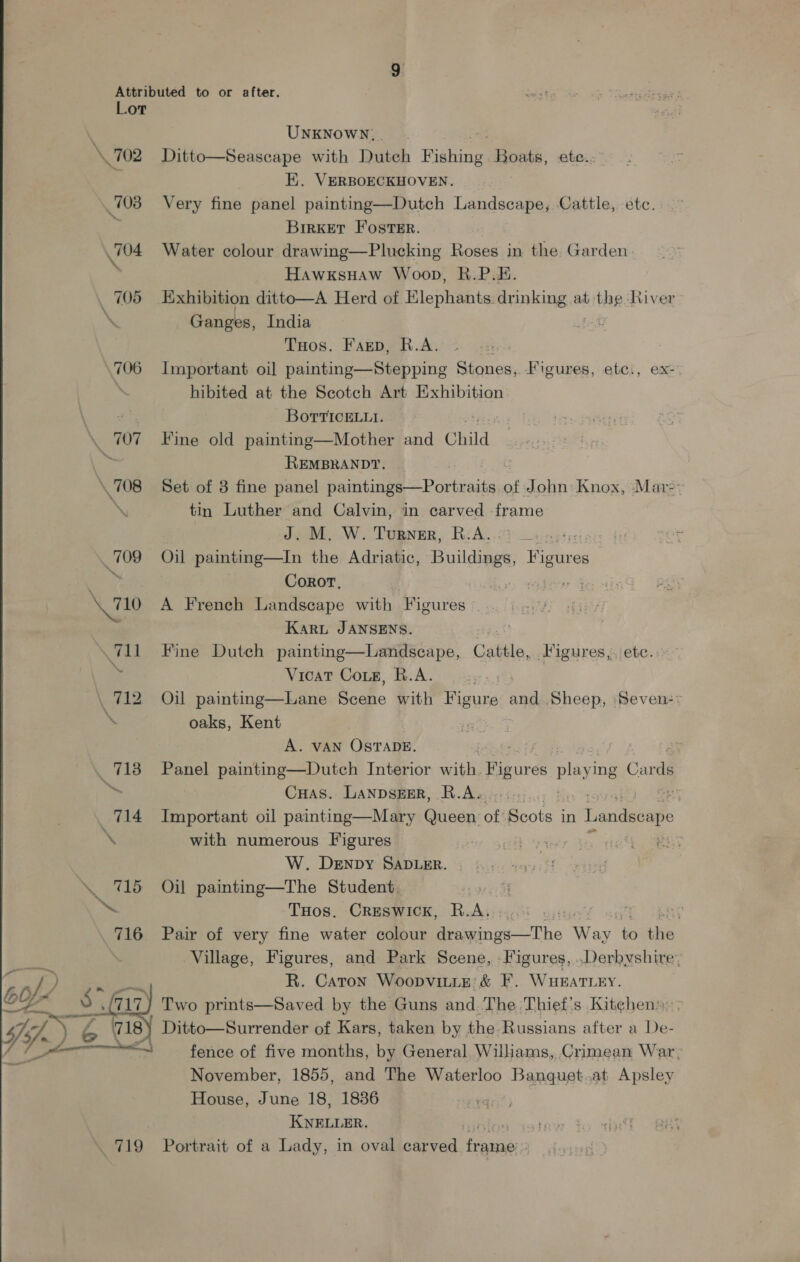 9
Attributed to or after.
Lot
UNKNOWN.
702 Ditto—Seascape with Dutch Fishing Boats, etc.
E. VERBOECKHOVEN.
703 Very fine panel painting—Dutch Landscape, Cattle, etc.
BIRKET FOSTER.
704 Water colour drawing—Plucking Roses in the Garden
HAWKSHAW WOOD, R.P.E.
705 Exhibition ditto—A Herd of Elephants drinking at the River
Ganges, India
THOS. FAED, R.A.
706 Important oil painting—Stepping Stones, Figures, etc., ex-
hibited at the Scotch Art Exhibition
BOTTICELLI.
707 Fine old painting—Mother and Child
REMBRANDT.
708 Set of 3 fine panel paintings—Portraits of John Knox, Mar-
tin Luther and Calvin, in carved frame
J. M. W. TURNER, R.A.
709 Oil painting—In the Adriatic, Buildings, Figures
COROT,
710 A French Landscape with Figures
KARL JANSENS.
711 Fine Dutch painting—Landscape, Cattle, Figures, etc.
VICAT COLE, R.A.
712 Oil painting—Lane Scene with Figure and Sheep, Seven-
oaks, Kent
A. VAN OSTADE.
713 Panel painting—Dutch Interior with Figures playing Cards
CHAS. LANDSEER, R.A.
714 Important oil painting—Mary Queen of Scots in Landscape
with numerous Figures
W. DENDY SADLER.
715 Oil painting—The Student
THOS. CRESWICK, R.A.
716 Pair of very fine water colour drawings—The Way to the
Village, Figures, and Park Scene, Figures, Derbyshire
R. CATON WOODVILLE & F. WHEATLEY.
717 Two prints—Saved by the Guns and The Thief's Kitchen
718 Ditto—Surrender of Kars, taken by the Russians after a De-
fence of five months, by General Williams, Crimean War,
November, 1855, and The Waterloo Banquet at Apsley
House, June 18, 1836
KNELLER.
719 Portrait of a Lady, in oval carved frame